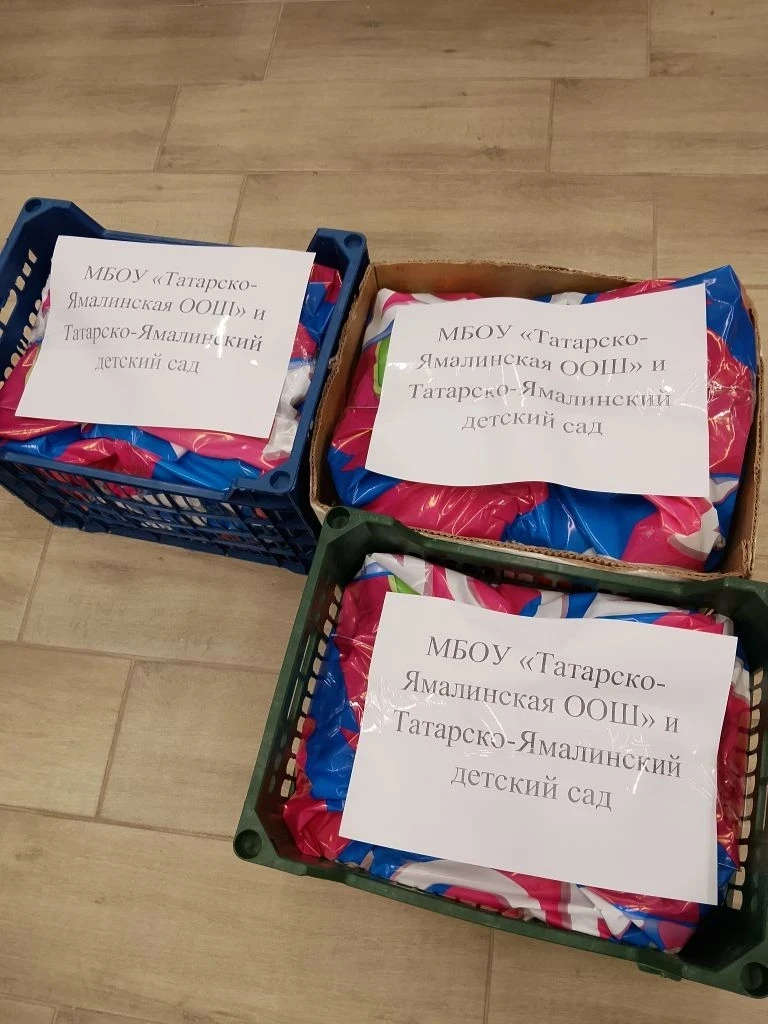 МБОУ «Татарско-
Ямалинская ООШ» и
Татарско-Ямалинский
детский сад
МБОУ «Татарско-
Ямалинская ООШ» и
Татарско-Ямалинский
детский сад
МБОУ «Татарско-
Ямалинская ООШ» и
Татарско-Ямалинский
детский сад